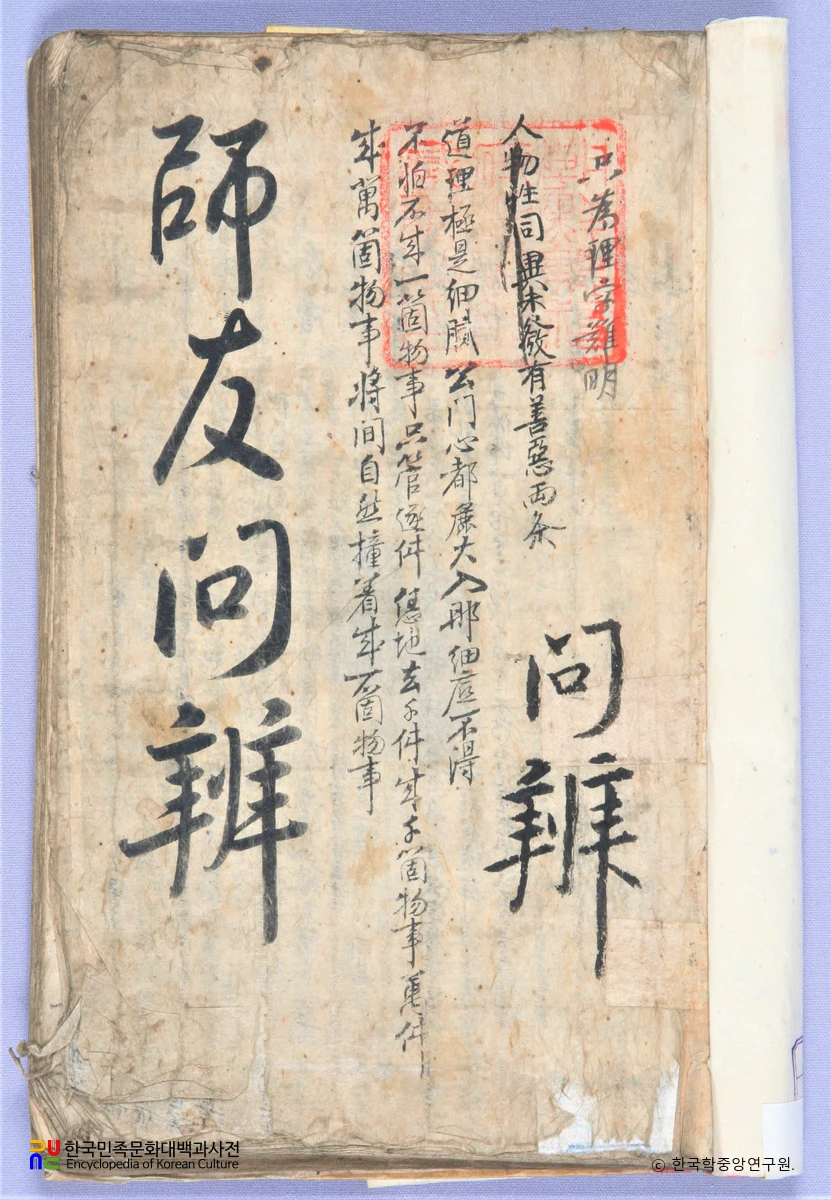 只為理字難明
人物性同異未發有善惡両条
問辨
道理極是細膩公门心都麁大入那細底不得
不怕不成一箇物事只管逐件恁地去千件成千箇物事萬件
成萬箇物事將间自然撞着成一箇物事
師友问辨
한국민족문화대백과사전
Encyclopedia of Korean Culture
© 한국학중앙연구원.